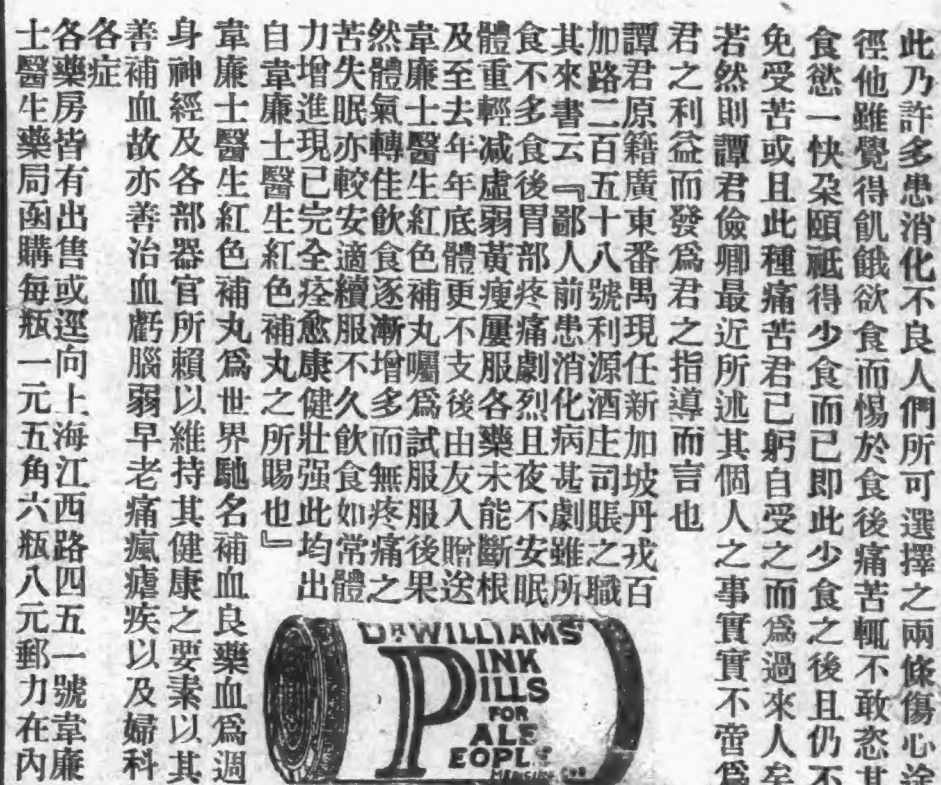 此乃許多患消化不良人們所可選擇之兩條傷心途
徑他雖覺得飢餓欲食而惕於食後痛苦輒不敢恣其
食慾一快朶頤祗得少食而已即此少食之後且仍不
免受苦或且此種痛苦君已躬自受之而爲過來人矣
若然則譚君儉卿最近所述其個人之事實實不啻爲
君之利益而發爲君之指導而言也
譚君原籍廣東番禺現任新加坡丹戎百
加路二百五十八號利源酒庄司賬之職
其來書云『鄙人前患消化病甚劇雖所
食不多食後胃部疼痛劇烈且夜不安眠
體重輕減虛弱黃瘦屢服各藥未能斷根
及至去年年底體更不支後由友入贈送
韋廉士醫生紅色補丸囑爲試服服後果
然體氣轉佳飲食逐漸增多而無疼痛之
苦失眠亦較安適續服不久飲食如常體
力增進現已完全痊愈康健壯强此均出
自韋廉士醫生紅色補丸之所賜也』
韋廉士醫生紅色補丸爲世界馳名補血良藥血爲週
身神經及各部器官所賴以維持其健康之要素以其
善補血故亦善治血虧腦弱早老痛瘋瘧疾以及婦科
各症
各藥房皆有出售或逕向上海江西路四五一號韋廉
士醫生藥局函購每瓶一元五角六瓶八元郵力在內
DR WILLIAMS
PINK
PILLS
FOR
PALE
PEOPLE